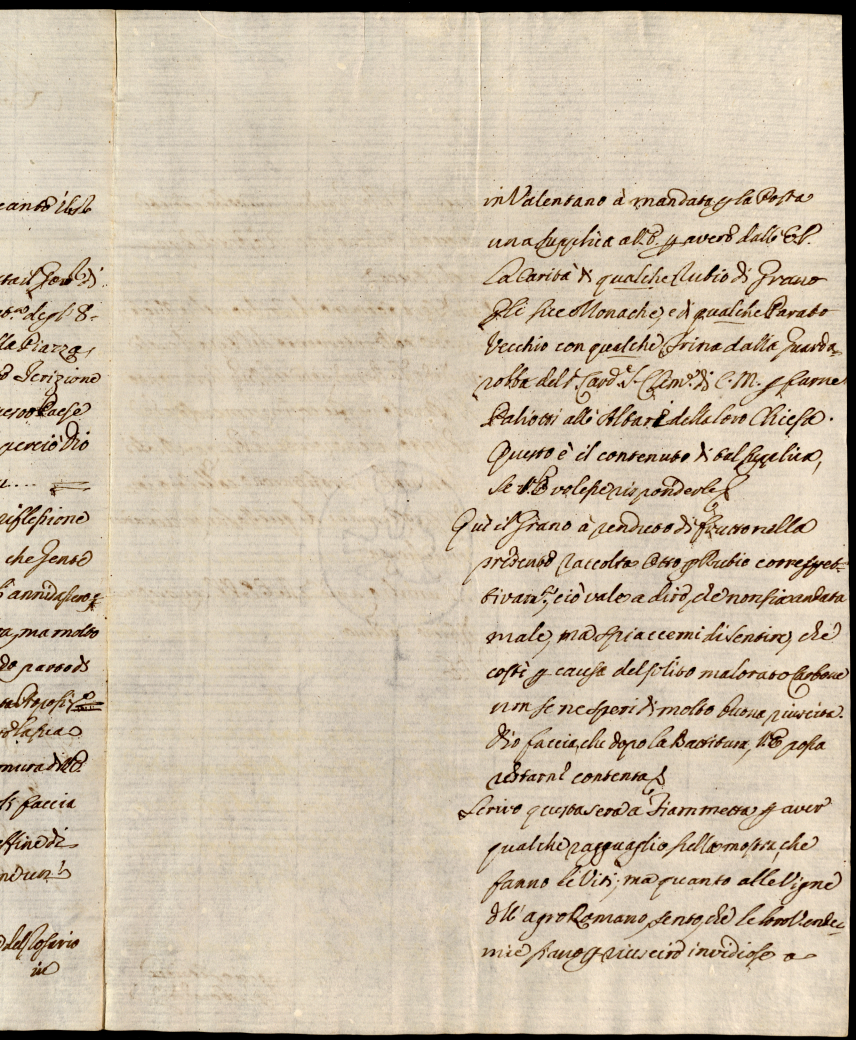 canto
degl' 8-
la Piazza,
Iscrizione
Paese
perciò Dio
riflessione
che gente
s'annidassero
ra, ma molto
do parte di
la sua
mura di
faccia
affine di
del Rosario
in
in Valentano à mandata p la Posta
una supplica all'E. p avere dall' E.V.
La Carità di qualche Rubio di Grano
p le sue Monache, e di qualche Parato
Vecchio con qualche Trina dalla Guarda,
robba del Card. di C. M. p farne
Paliotti alle Altari della loro Chiesa.
Questo è il contenuto di tal supplica,
Se V.E. volesse risponderle
Qui il Grano à renduto di frutto nella
presente raccolta Otto p Rubio correspet-
tivam.te, ciò vale a dire, che non sia andata
male, ma spiaccemi di sentire, che
costì p causa del solito malorato Carbone
non se ne speri di molto buona riuscita.
Dio faccia, che dopo la Battitura, V.E. possa
restarne contenta
Scrivo questa sera a Fiammetta p aver
qualche ragguaglio della mostra, che
fanno le Viti; ma quanto alle Vigne
dell' agro Romano, sento, che le loro Vende-
mie siano p riuscire invidiose a